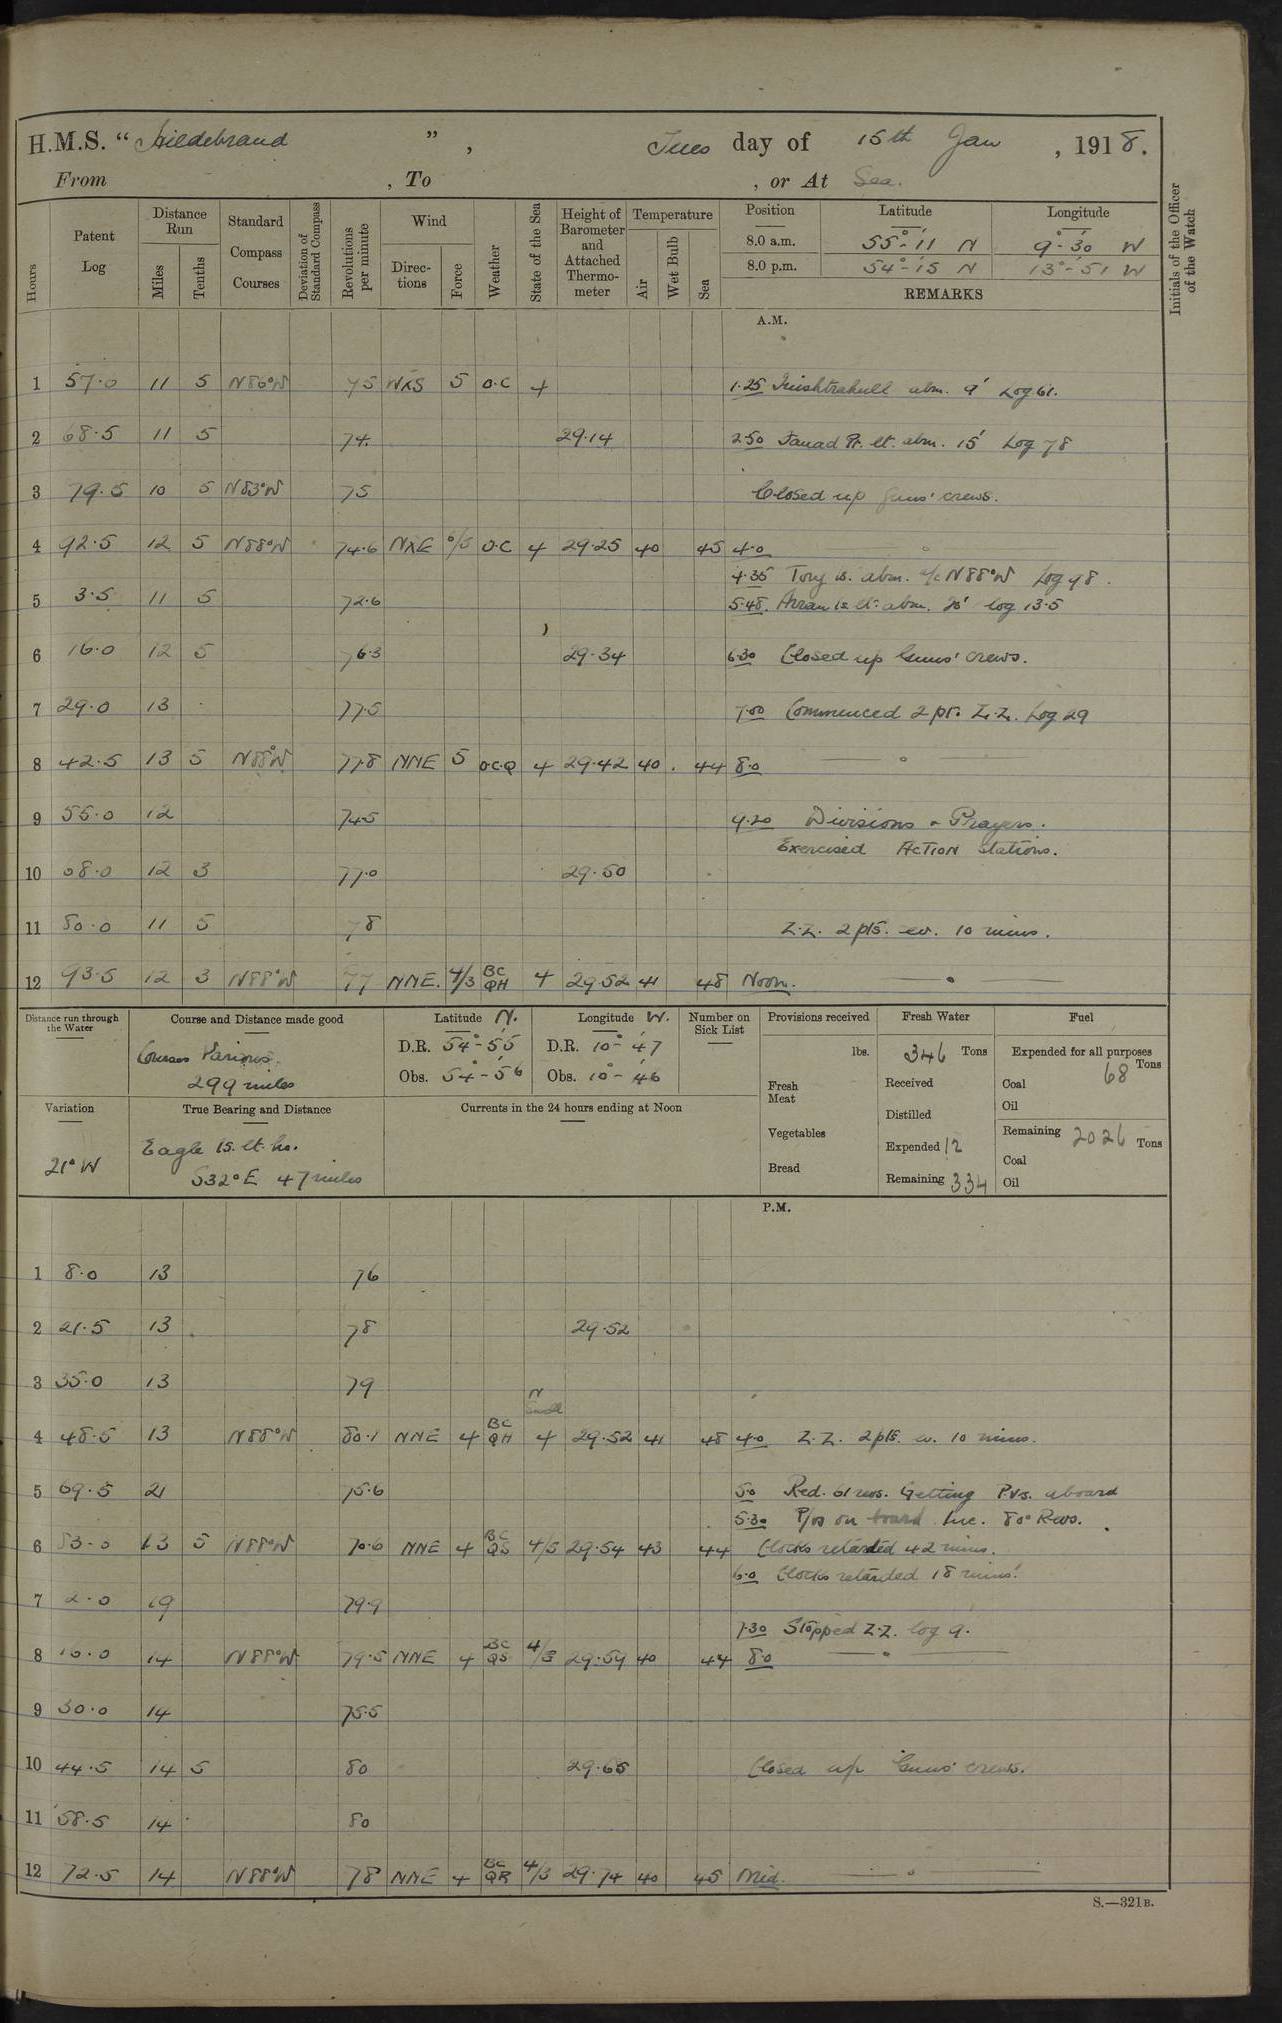 H.M.S. “ Hildebrand ” , Tues day of 15th Jan , 1918.
From , To , or At Sea.
Hours
Patent Log
Distance Run
Miles
Tenths
Standard Compass Courses
Deviation of Standard Compass
Revolutions per minute
Wind
Directions
Force
Weather
State of the Sea
Height of Barometer and Attached Thermometer
Temperature
Air
Wet Bulb
Sea
Position Latitude Longitude
8.0 a.m. 55°-11' N 9°-30' W
8.0 p.m. 54°-15' N 13°-51' W
REMARKS
Initials of the Officer of the Watch
A.M.
1 57.0 11 5 N86°W 75 WXS 5 O.C 4 1.25 Inishtrahull abm. 9' Log 61.
2 68.5 11 5 74. 29.14 2.50 Fanad Pt. lt. abm. 15' Log 78
3 79.5 10 5 N83°W 75 Closed up Guns' crews.
4 92.5 12 5 N88°W 74.6 NXE O.C 4 29.25 40 45 4.0
4.35 Tory is. abm. a/c N88°W Log 98.
5 3.5 11 5 72.6 5.48. Arran Is lt. abm. log 13.5
6 16.0 12 5 76.3 29.34 6.30 Closed up Guns' crews.
7 29.0 13 77.5 7.00 Commenced 2 pt. Z.Z. Log 29
8 42.5 13 5 N88°W 77.8 NNE 5 O.C.Q 4 29.42 40 44 8.0
9 55.0 12 74.5 9.20 Divisions & Prayers.
Exercised ACTION Stations.
10 68.0 12 3 77.0 29.50
11 80.0 11 5 78 Z.Z. 2 pts. ev. 10 mins.
12 93.5 12 3 N88°W 77 NNE. 4/3 BC QH 4 29.52 41 48 Noon.
Distance run through the Water
Course and Distance made good
Courses Various
299 miles
Latitude N.
D.R. 54°-55'
Obs. 54°-56'
Longitude W.
D.R. 10°-47'
Obs. 10°-46'
Number on Sick List
Provisions received
lbs.
Fresh Meat
Vegetables
Bread
Fresh Water
346 Tons
Received
Distilled
Expended 12
Remaining 334
Fuel
Expended for all purposes
Tons
Coal 68
Oil
Remaining 2026 Tons
Coal
Oil
Variation
21° W
True Bearing and Distance
Eagle Is. lt. ho.
S32°E 47 miles
Currents in the 24 hours ending at Noon
P.M.
1 8.0 13 76
2 21.5 13 78 29.52
3 35.0 13 79
4 48.5 13 N88°W 80.1 NNE 4 BC QH N 4 29.52 41 48 4.0 Z.Z. 2 pts. ev. 10 mins.
5 69.5 21 75.6 5.0 Red. 61 revs. Getting P.V.s. aboard
5.30 P/Vs on board Inc. 80 Revs.
6 83.0 13 5 N88°W 70.6 NNE 4 BC QS 4/5 29.54 43 44 Clocks retarded 42 mins.
6.0 Clocks retarded 18 mins.
7 2.0 19 79.9
7.30 Stopped Z.Z. log 9.
8 16.0 14 N88°W 79.5 NNE 4 BC QS 29.59 40 44 8.0
9 30.0 14 75.5
10 44.5 14 5 80 29.65 Closed up Guns' crews.
11 58.5 14 80
12 72.5 14 N88°W 78 NNE 4 BC QR 4/3 29.74 40 45 Mid.
S.—321B.